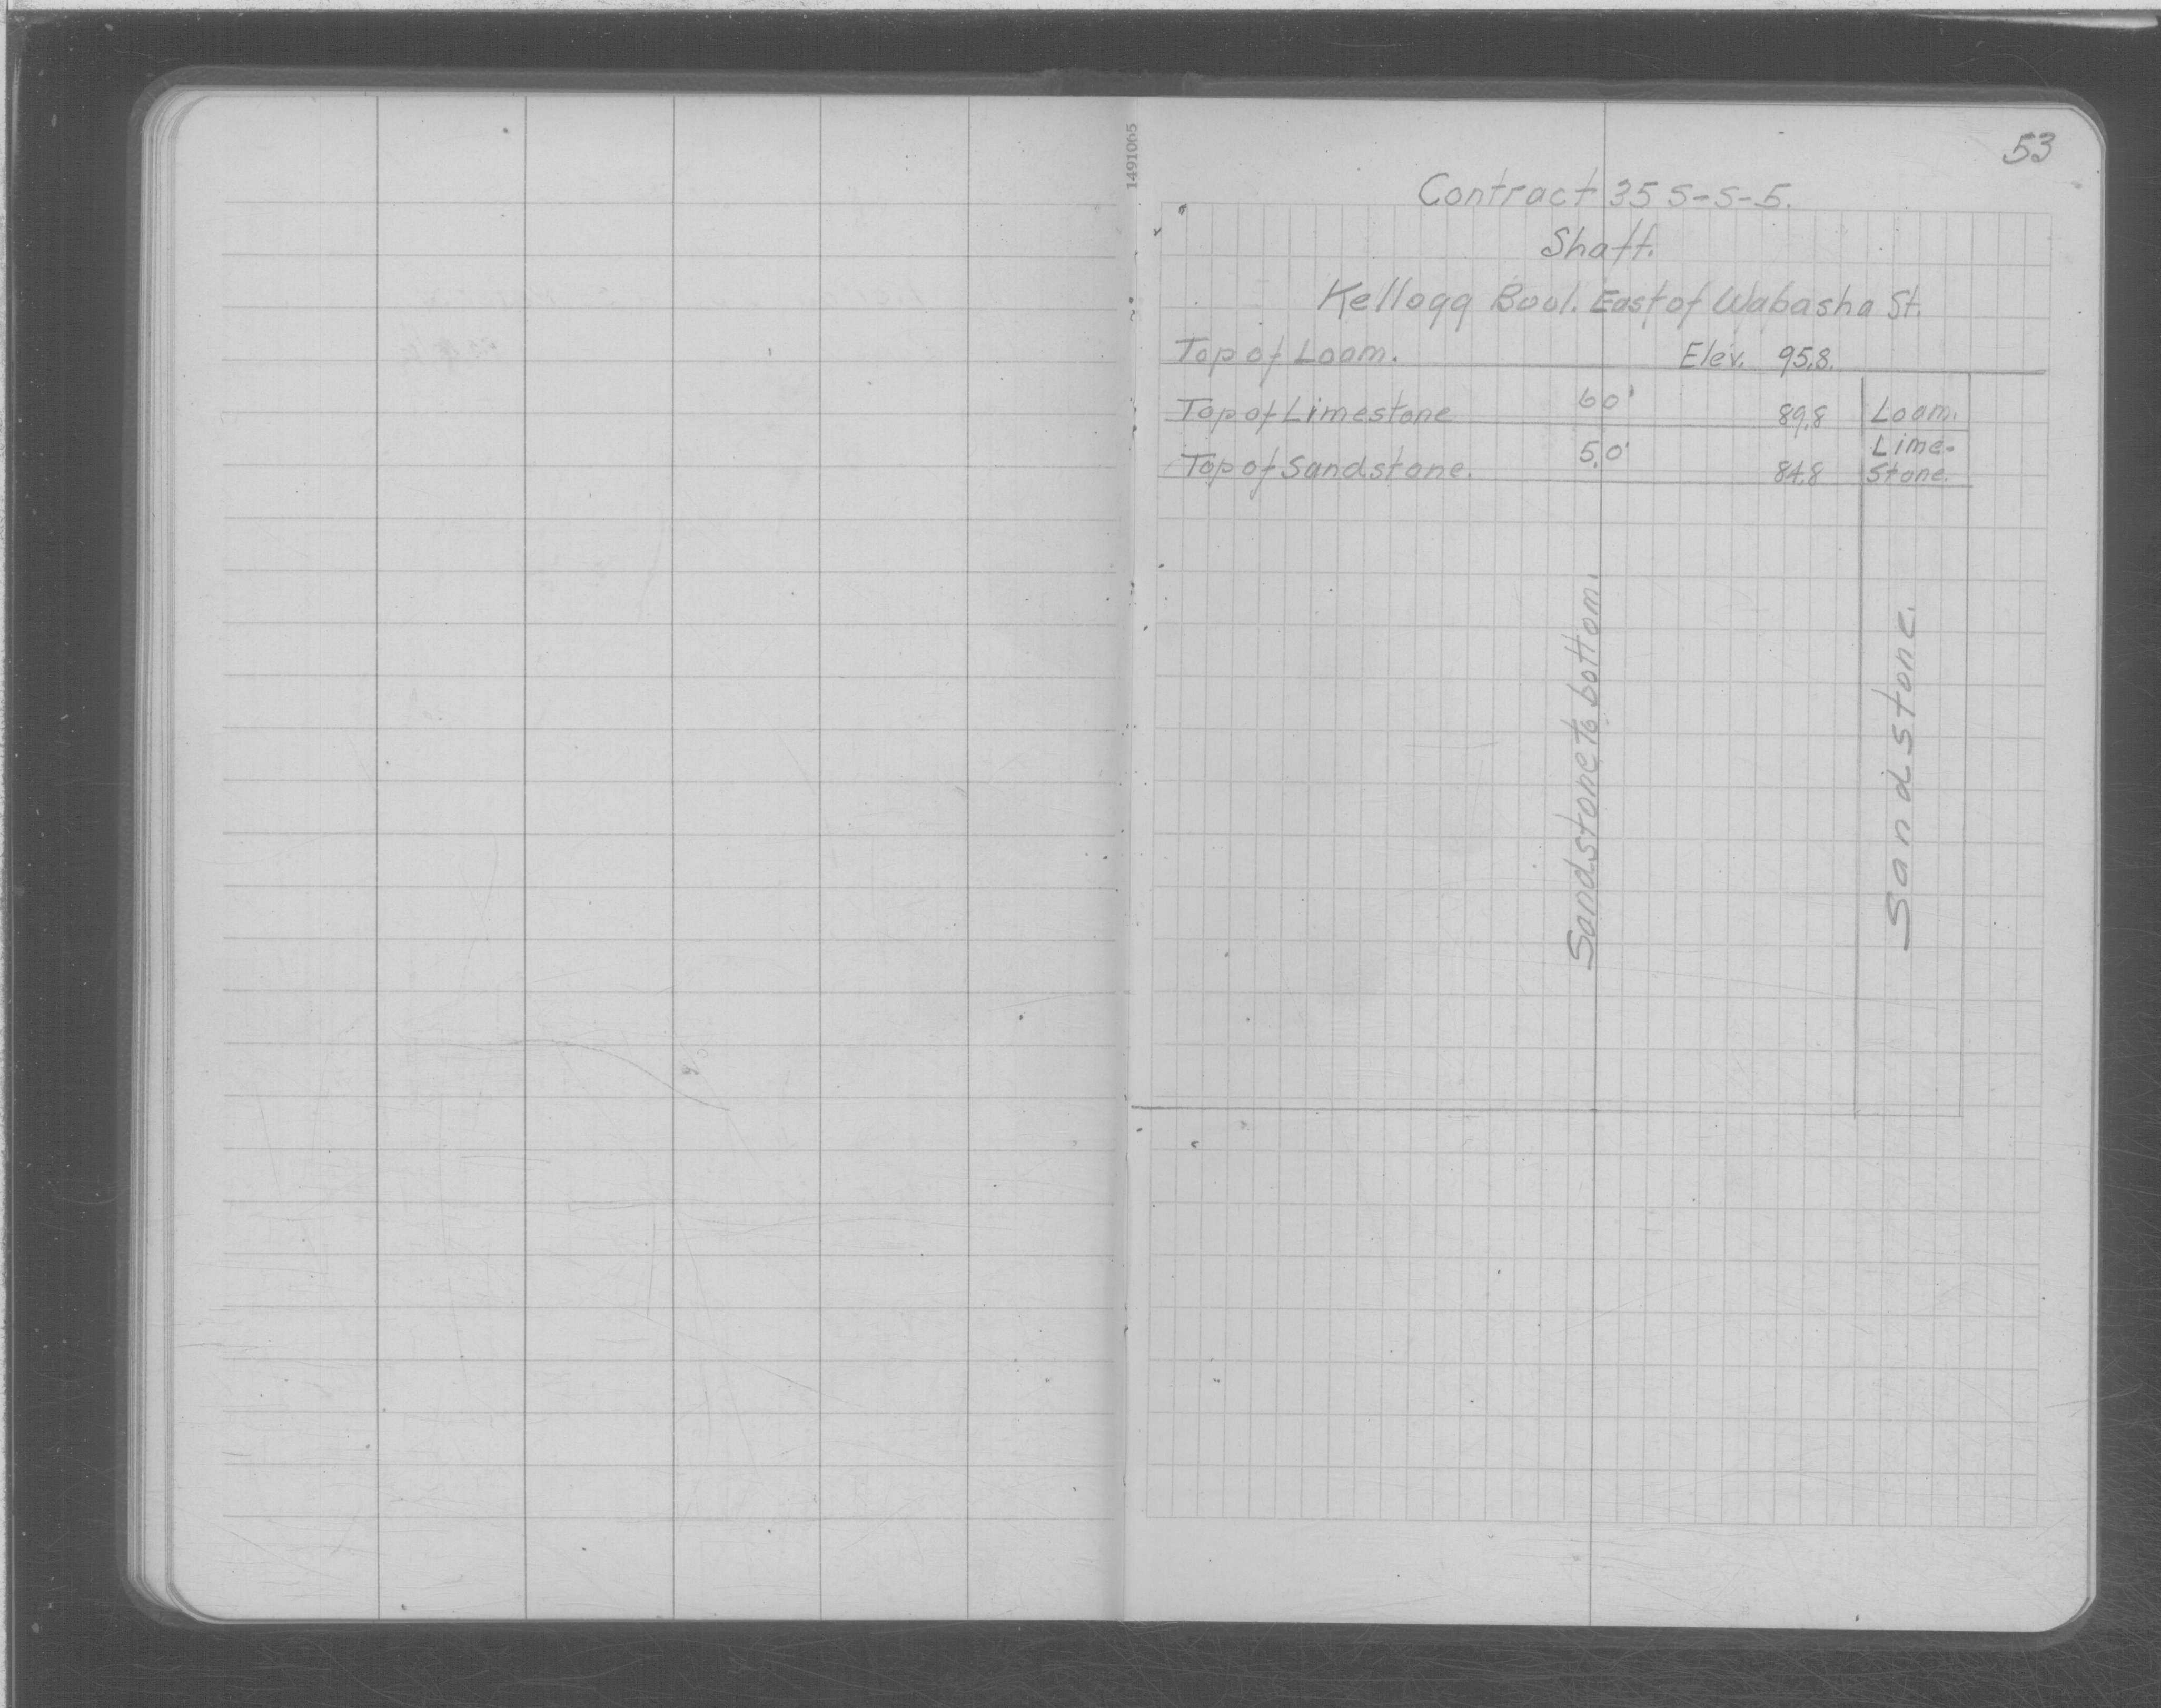 53
1491065
Contract 35 S-S-5.
Shaft.
Kellogg Boul. East of Wabasha St.
Top of Loam. Elev. 95.8.
Top of Limestone 6.0' 89.8 Loam.
Top of Sandstone. 5.0' 84.8 Lime-
Stone.
Sandstone to bottom.
Sandstone.